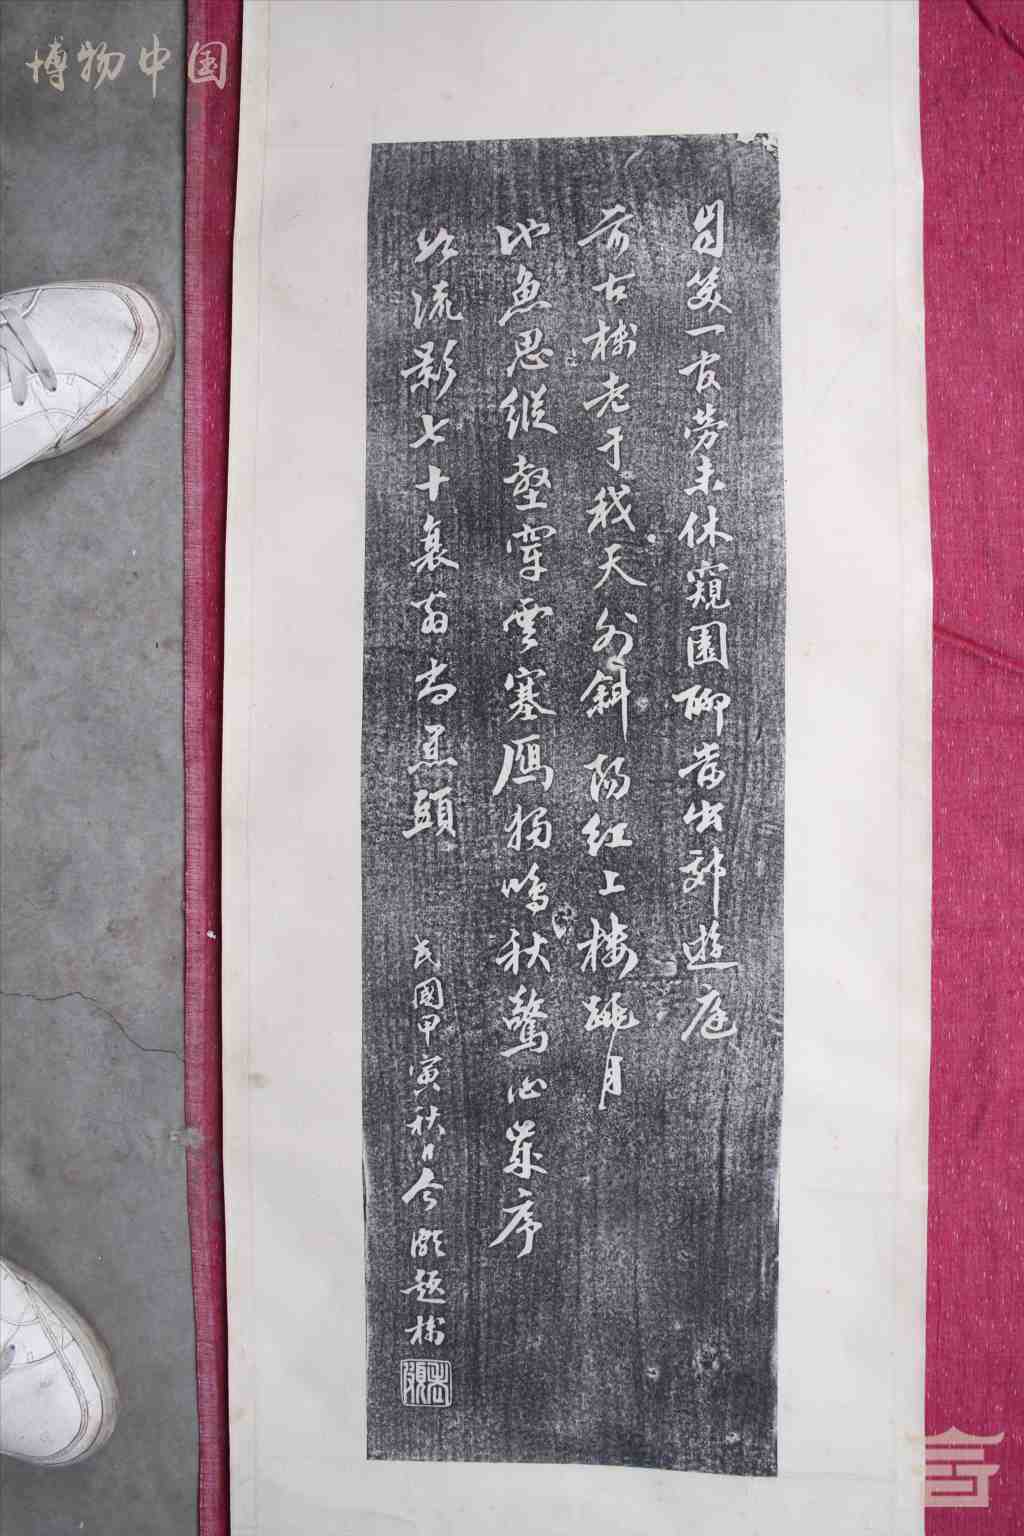 博物中国
自笑一官勞未休窺園聊當出郊遊庭
前古樹老于我天外斜陽紅上樓跳月
池魚思縱壑穿雲塞鴈獨鳴秋驚心歲序
如流影七十衰翁尚黑頭
民國甲寅秋日今頗題樹